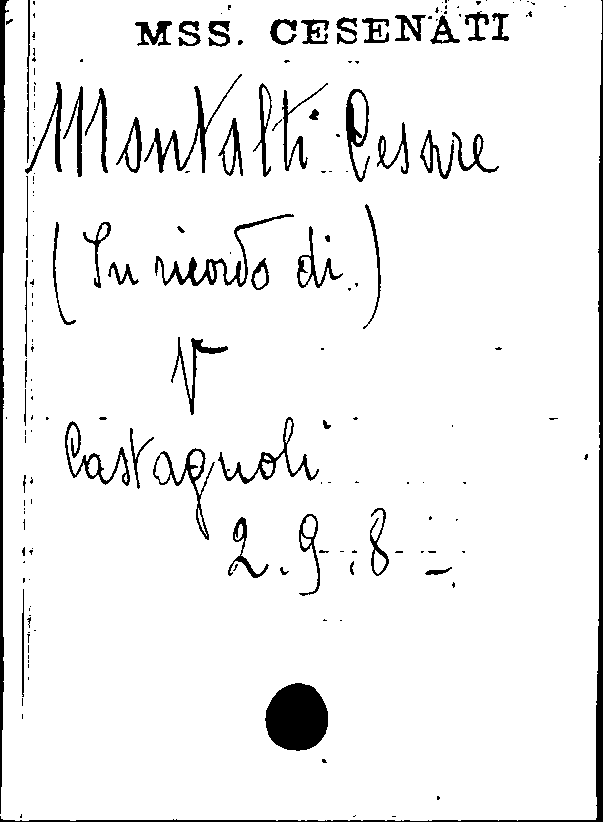 MSS. CESENATI
Montalti Cesare
(In ricordo di)
V
Castagnoli
2.9.8-